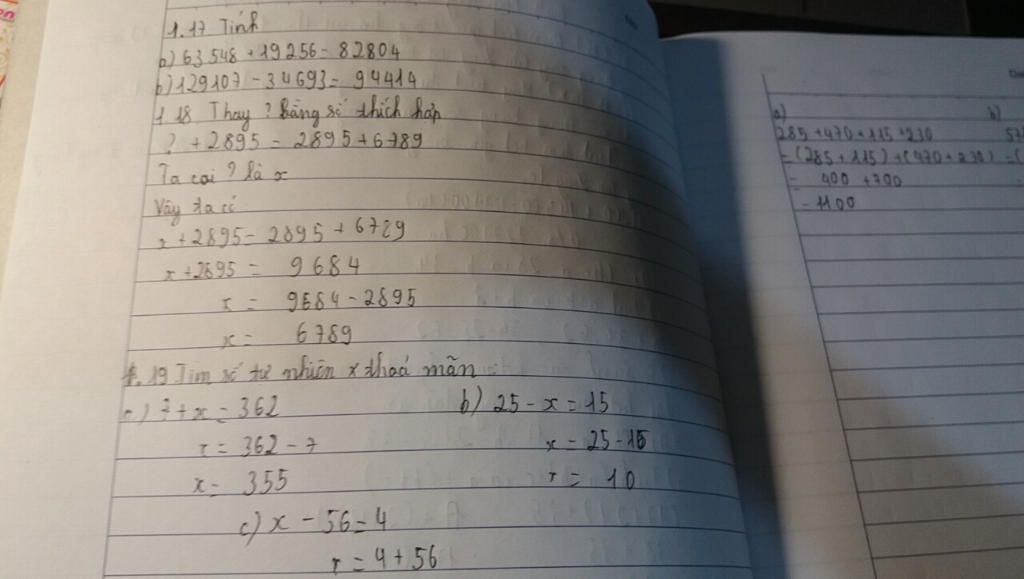 1.17 Tính
b) 63548 + 19256 = 82804
b) 129107 - 34693 = 94414
1.18 Thay ? bằng số thích hợp
? + 2895 = 2895 + 6789
Ta coi ? là x
Vậy ta có
x + 2895 = 2895 + 6789
x + 2895 = 9684
x = 9684 - 2895
x = 6789
1.19 Tìm số tự nhiên x thoả mãn :
a) 7 + x = 362 b) 25 - x = 15
x = 362 - 7 x = 25 - 15
x = 355 x = 10
c) x - 56 = 4
x = 4 + 56
a) b)
285 + 470 + 115 + 230 57
= (285 + 115) + (470 + 230) = (
= 400 + 700
= 1100